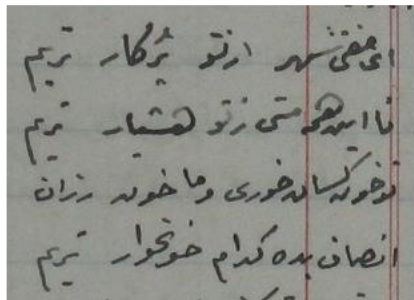 ای مفتی شهر از تو پرکار تریم
با این همه مستی ز تو هشیار تریم
تو خون کسان خوری و ما خون رزان
انصاف بده کدام خونخوار تریم